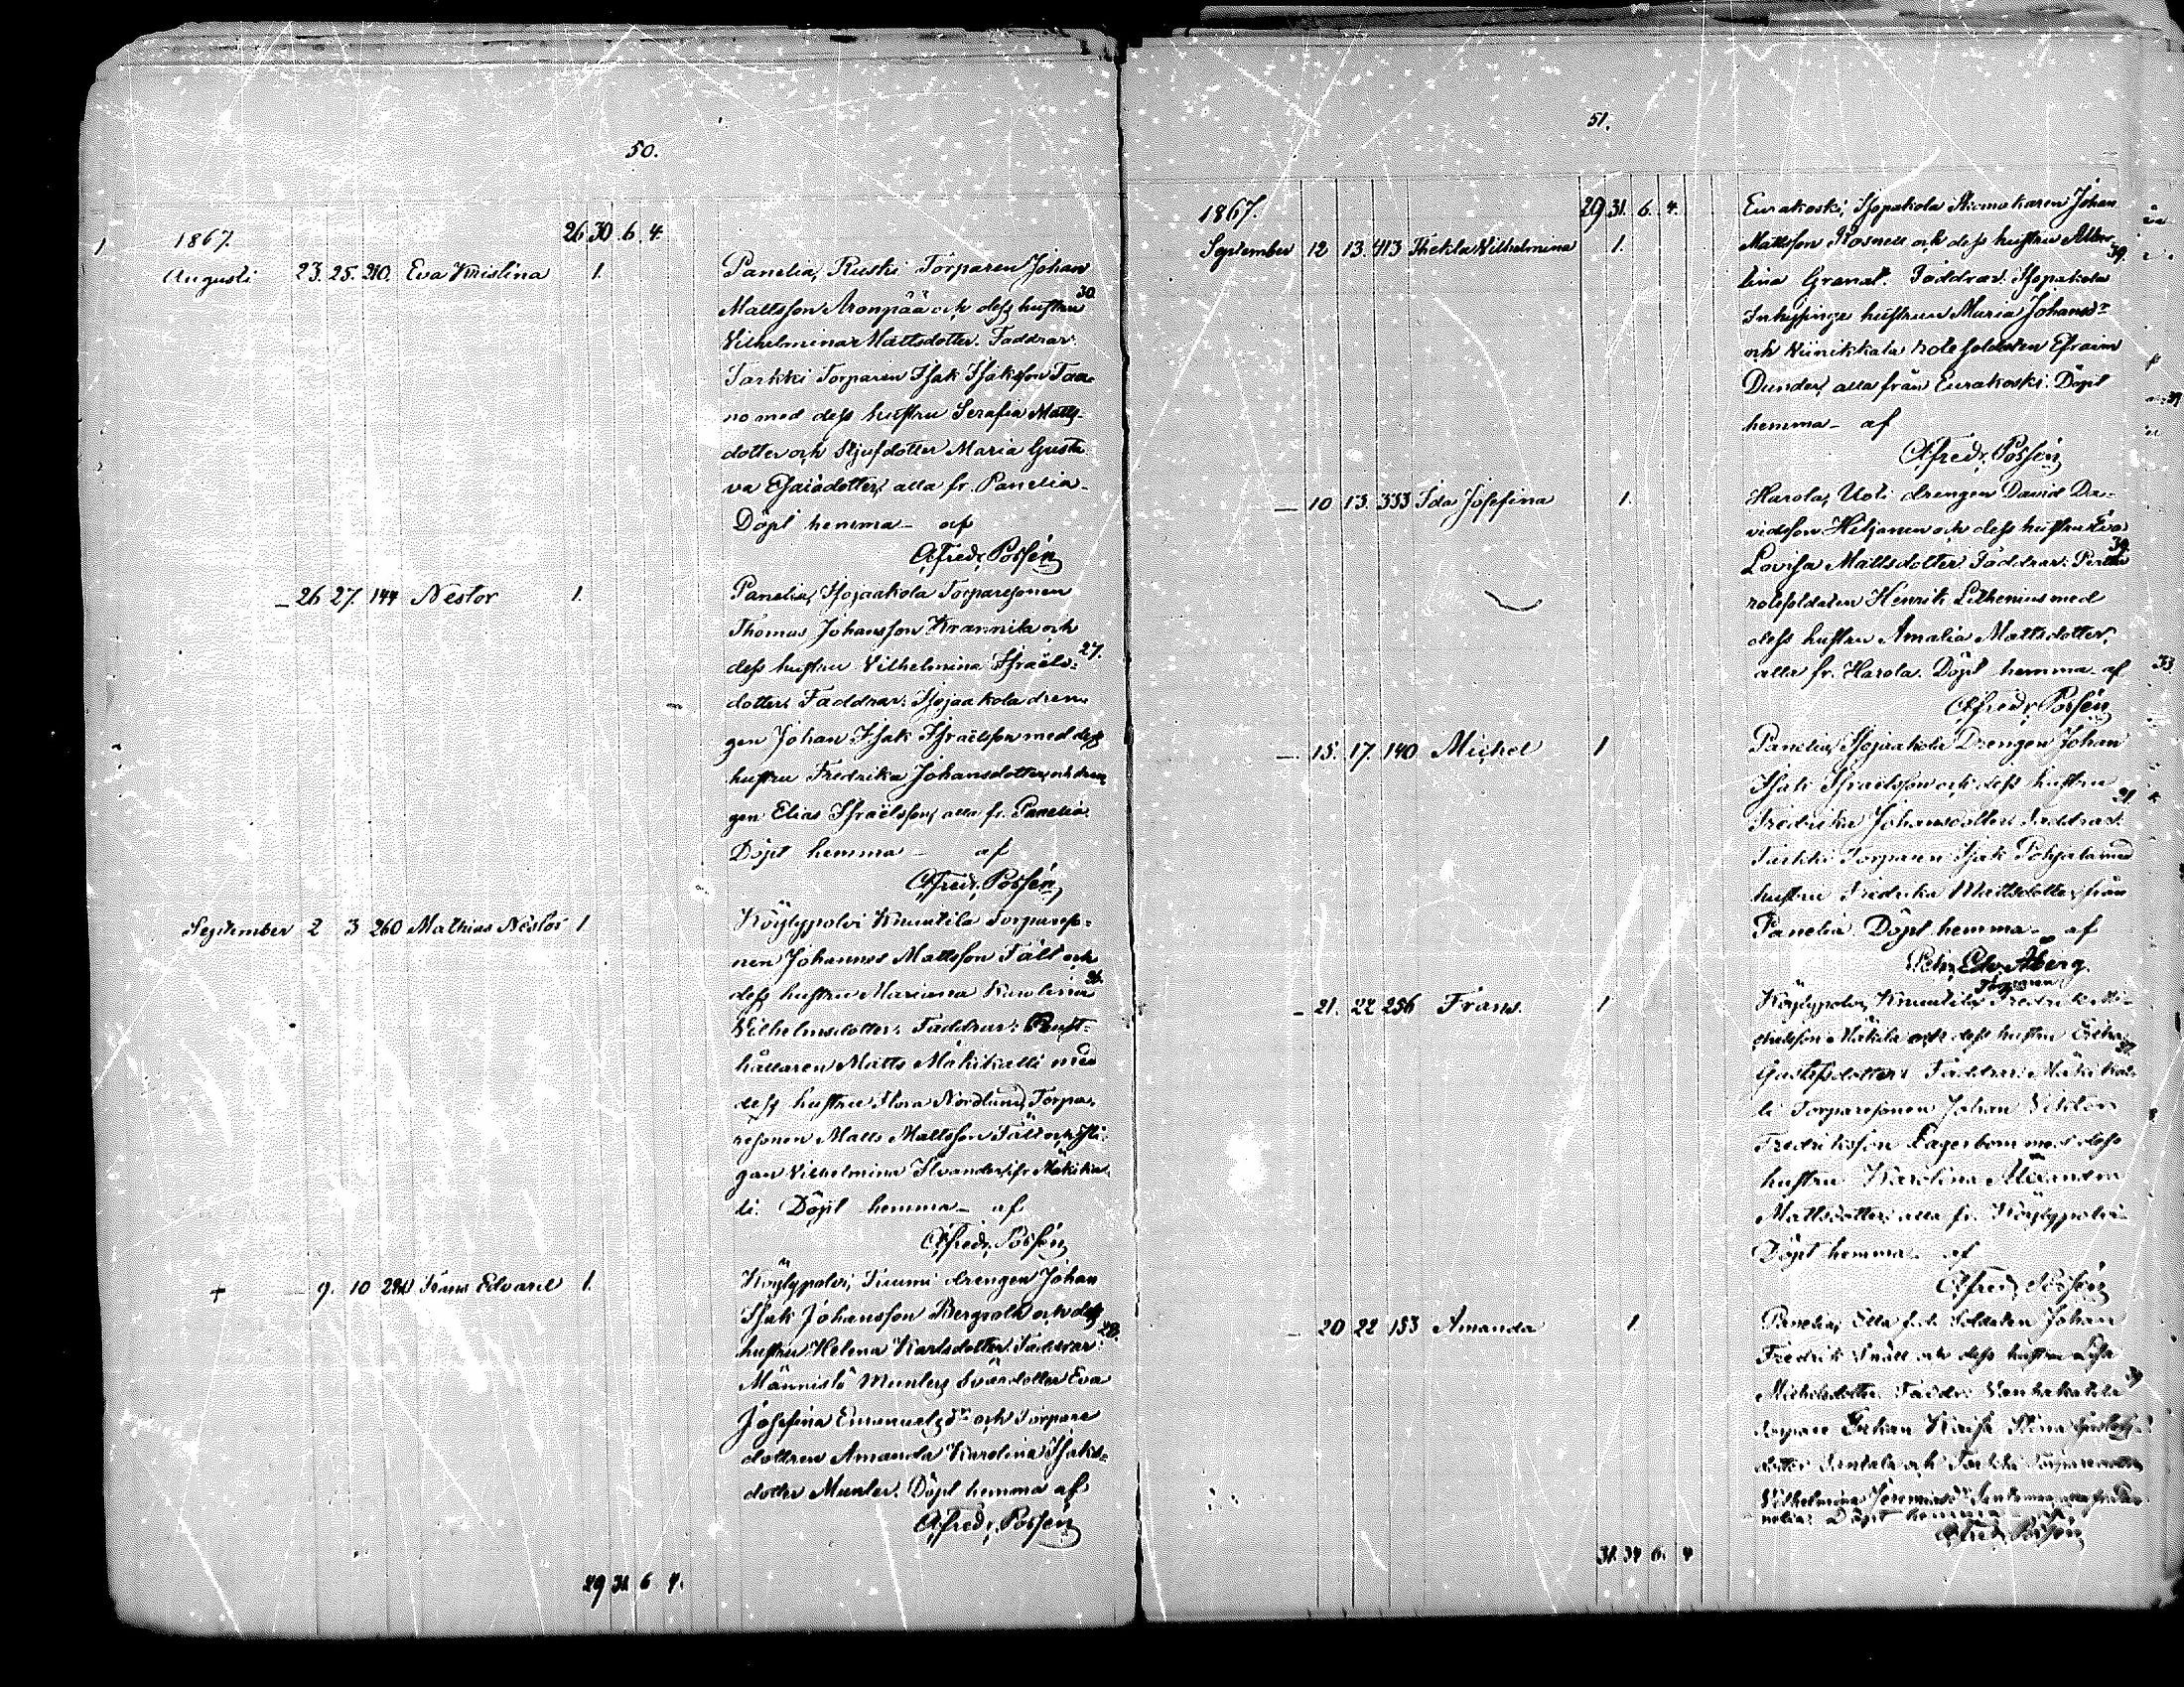 50.
1867. 26 30. 6. 4.
Augusti 23. 25. 210. Eva Kristina 1. Panelia, Ruski Torparen Johan
Mattsson Aronpää och dess hustru 30.
Vilhelmina Mattsdotter. Faddrar:
Tarkki Torparen Isak Isaksson Taa-
no med dess hustru Serafia Matts-
dotter och Stjufdotter Maria Gusta
va Esaiædotter, alla fr. Panelia.
Döpt hemma — af
Alfredr. Possén
— 26 27. 144 Nestor 1. Panelia, Isojaakola Torparesonen
Thomas Johansson Krannila och
dess hustru Vilhelmina Israëls- 27.
dotter. Faddrar: Isojaakola dren-
gen Johan Isak Israëlsson med dess
hustru Fredrika Johansdotter och dren
gen Elias Israëlsson, alla fr. Panelia.
Döpt hemma — af
Alfredr. Possén
September 2 3 260 Mathias Nestor 1 Köylypolvi Knuutila Torpareso-
nen Johannes Mattsson Fält och
dess hustru Mariana Karolina
Vilhelmsdotter. Faddrar: Rust-
hållaren Matts Mäkikalli med
dess hustru Flora Nordlund, Torpa-
resonen Matts Mattsson Fält och Pi-
gan Vilhelmina Ilvander, fr. Mäkikal-
li. Döpt hemma — af
Alfredr. Possén
+ — 9. 10 Frans Edvard 1. Köylypolvi, Tuomi drengen Johan
Isak Johansson Bergroth och dess
hustru Helena Karlsdotter. Faddrar: 28.
Männistö Munter, Svärdotter Eva
Josefina Emanuelsdr och Torpare
dottren Amanda Karolina Isaks-
dotter Munter. Döpt hemma af
Alfredr. Possén
29 31. 6 4.
51.
1867. 29 31. 6. 4. Eurakoski, Isopakola Skomakaren Johan
September 12 13. 413 Thekla Vilhelmina 1. Mattsson Rosnell och dess hustru Alber- 39.
tina Granat. Faddrar: Isopakola
Inhysinge hustrun Maria Johansdr
och Viinikkala rotesoldaten Efraim
Dunder, alla från Eurakoski. Döpt
hemma — af
Alfredr. Possén
— 10 13. 333 Ida Josefina 1. Harola, Uoti drengen David Da-
vidsson Heljanen och dess hustru Eva
Lovisa Mattsdotter. Faddrar:
rotesoldaten Henrik Lithenius med
dess hustru Amalia Mattsdotter,
alla fr. Harola. Döpt hemma af
Alfredr. Possén
— 15. 17. 140 Michel 1 Panelia, Isojaakola Drengen Johan
Isak Israëlsson och dess hustru
Fredrika Johansdotter. Faddrar:
Tarkki Torparen Isak Pohjala med
hustru Fredrika Mattsdotter, från
Panelia. Döpt hemma — af
Petr. Edv. Åberg.
Torparen
— 21. 22 256 Frans. 1 Köylypolvi, Knuutila Fredrik Mi-
chelsson Mäkilä och dess hustru
Gustafsdotter. Faddrar: Mäkikal-
li Torparesonen Johan Viktor
Fredriksson Lagerbom med dess
hustru Karolina Alexandra
Mattsdotter, alla fr. Köylypolvi.
Döpt hemma — af
Alfredr. Possén
— 20 22 153 Amanda 1. Panelia, Soldaten Johan
Fredrik Snäll och dess hustru
Michelsdotter. Faddr:
Johan
dotter och Tarkki Torparedotter
Vilhelmina Jeremiasdr
nelia. Döpt hemma af
Alfredr. Possén
31. 34 6. 4